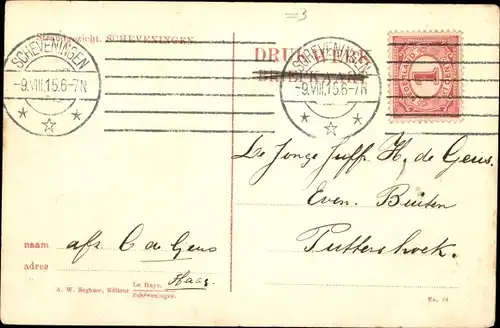 =3
Strandgezicht. SCHEVENINGEN.
SCHEVENINGEN
-9.VIII.15.6-7N
SCHEVENINGEN
-9.VIII.15.6-7N
DRUKWERK
BRIEFKAART
NEDERLAND
1
CENT
De Jonge Juffr. H. de Geus.
Even. Buiten
Puttershoek.
naam afz. C de Geus
adres
Haag.
A. W. Segboer, Éditeur La Haye.
Schéveningue.
No. 84